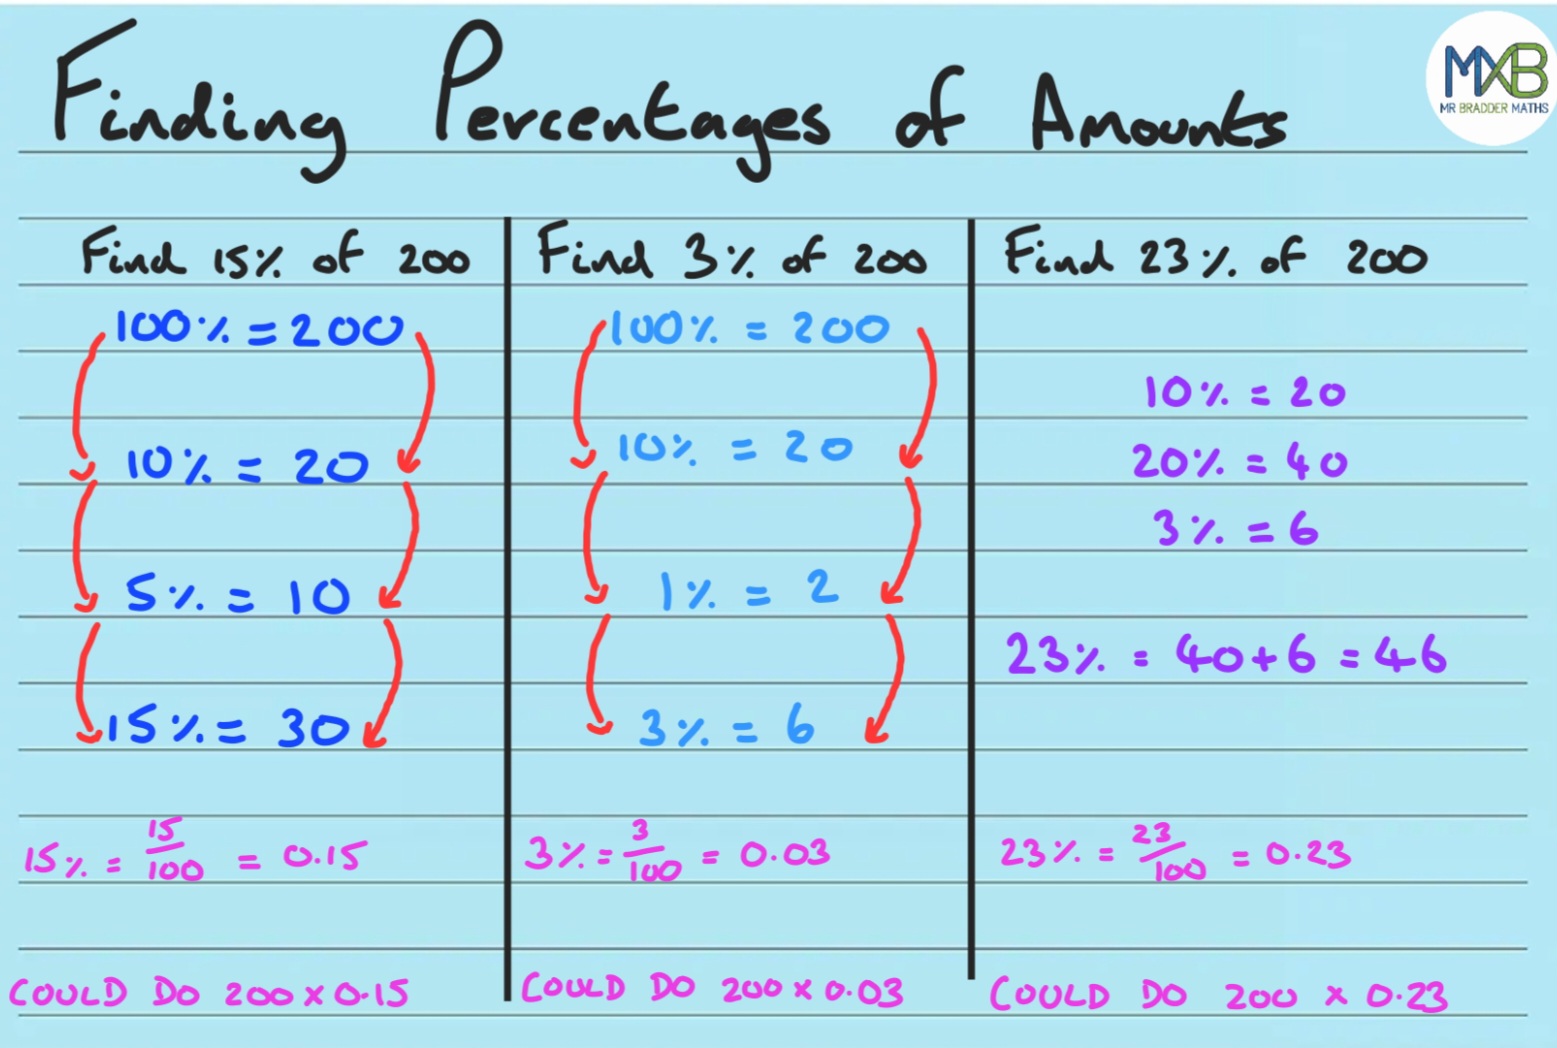 Finding Percentages of Amounts
MXB
MR BRADDER MATHS
Find 15% of 200
100% = 200
10% = 20
5% = 10
15% = 30
15% = 15/100 = 0.15
COULD DO 200 x 0.15
Find 3% of 200
100% = 200
10% = 20
1% = 2
3% = 6
3% = 3/100 = 0.03
COULD DO 200 x 0.03
Find 23% of 200
10% = 20
20% = 40
3% = 6
23% = 40+6 = 46
23% = 23/100 = 0.23
COULD DO 200 x 0.23